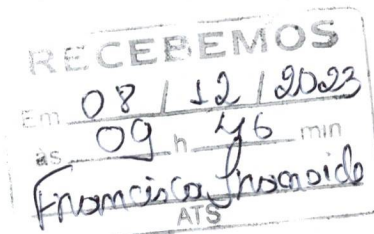 RECEBEMOS
Em 08 / 12 / 2023
às 09 h 46 min
Francisca
ATS